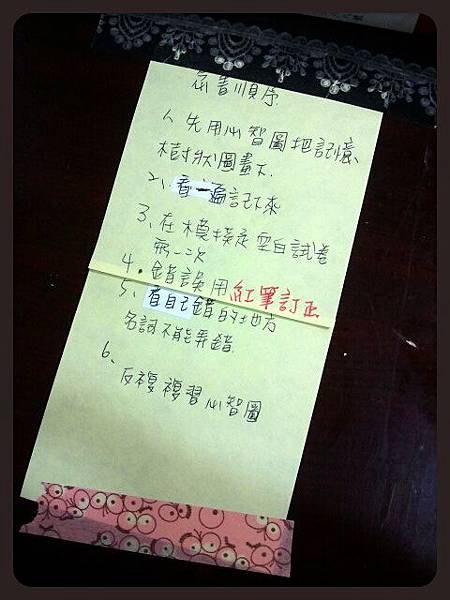 念書順序
1、先用心智圖把記憶
樹狀圖畫下
2、看一遍記下來
3、在模擬是空白試卷
寫一次
4、錯誤用紅筆訂正
5、看自己錯的地方
名詞不能弄錯
6、
反複複習心智圖